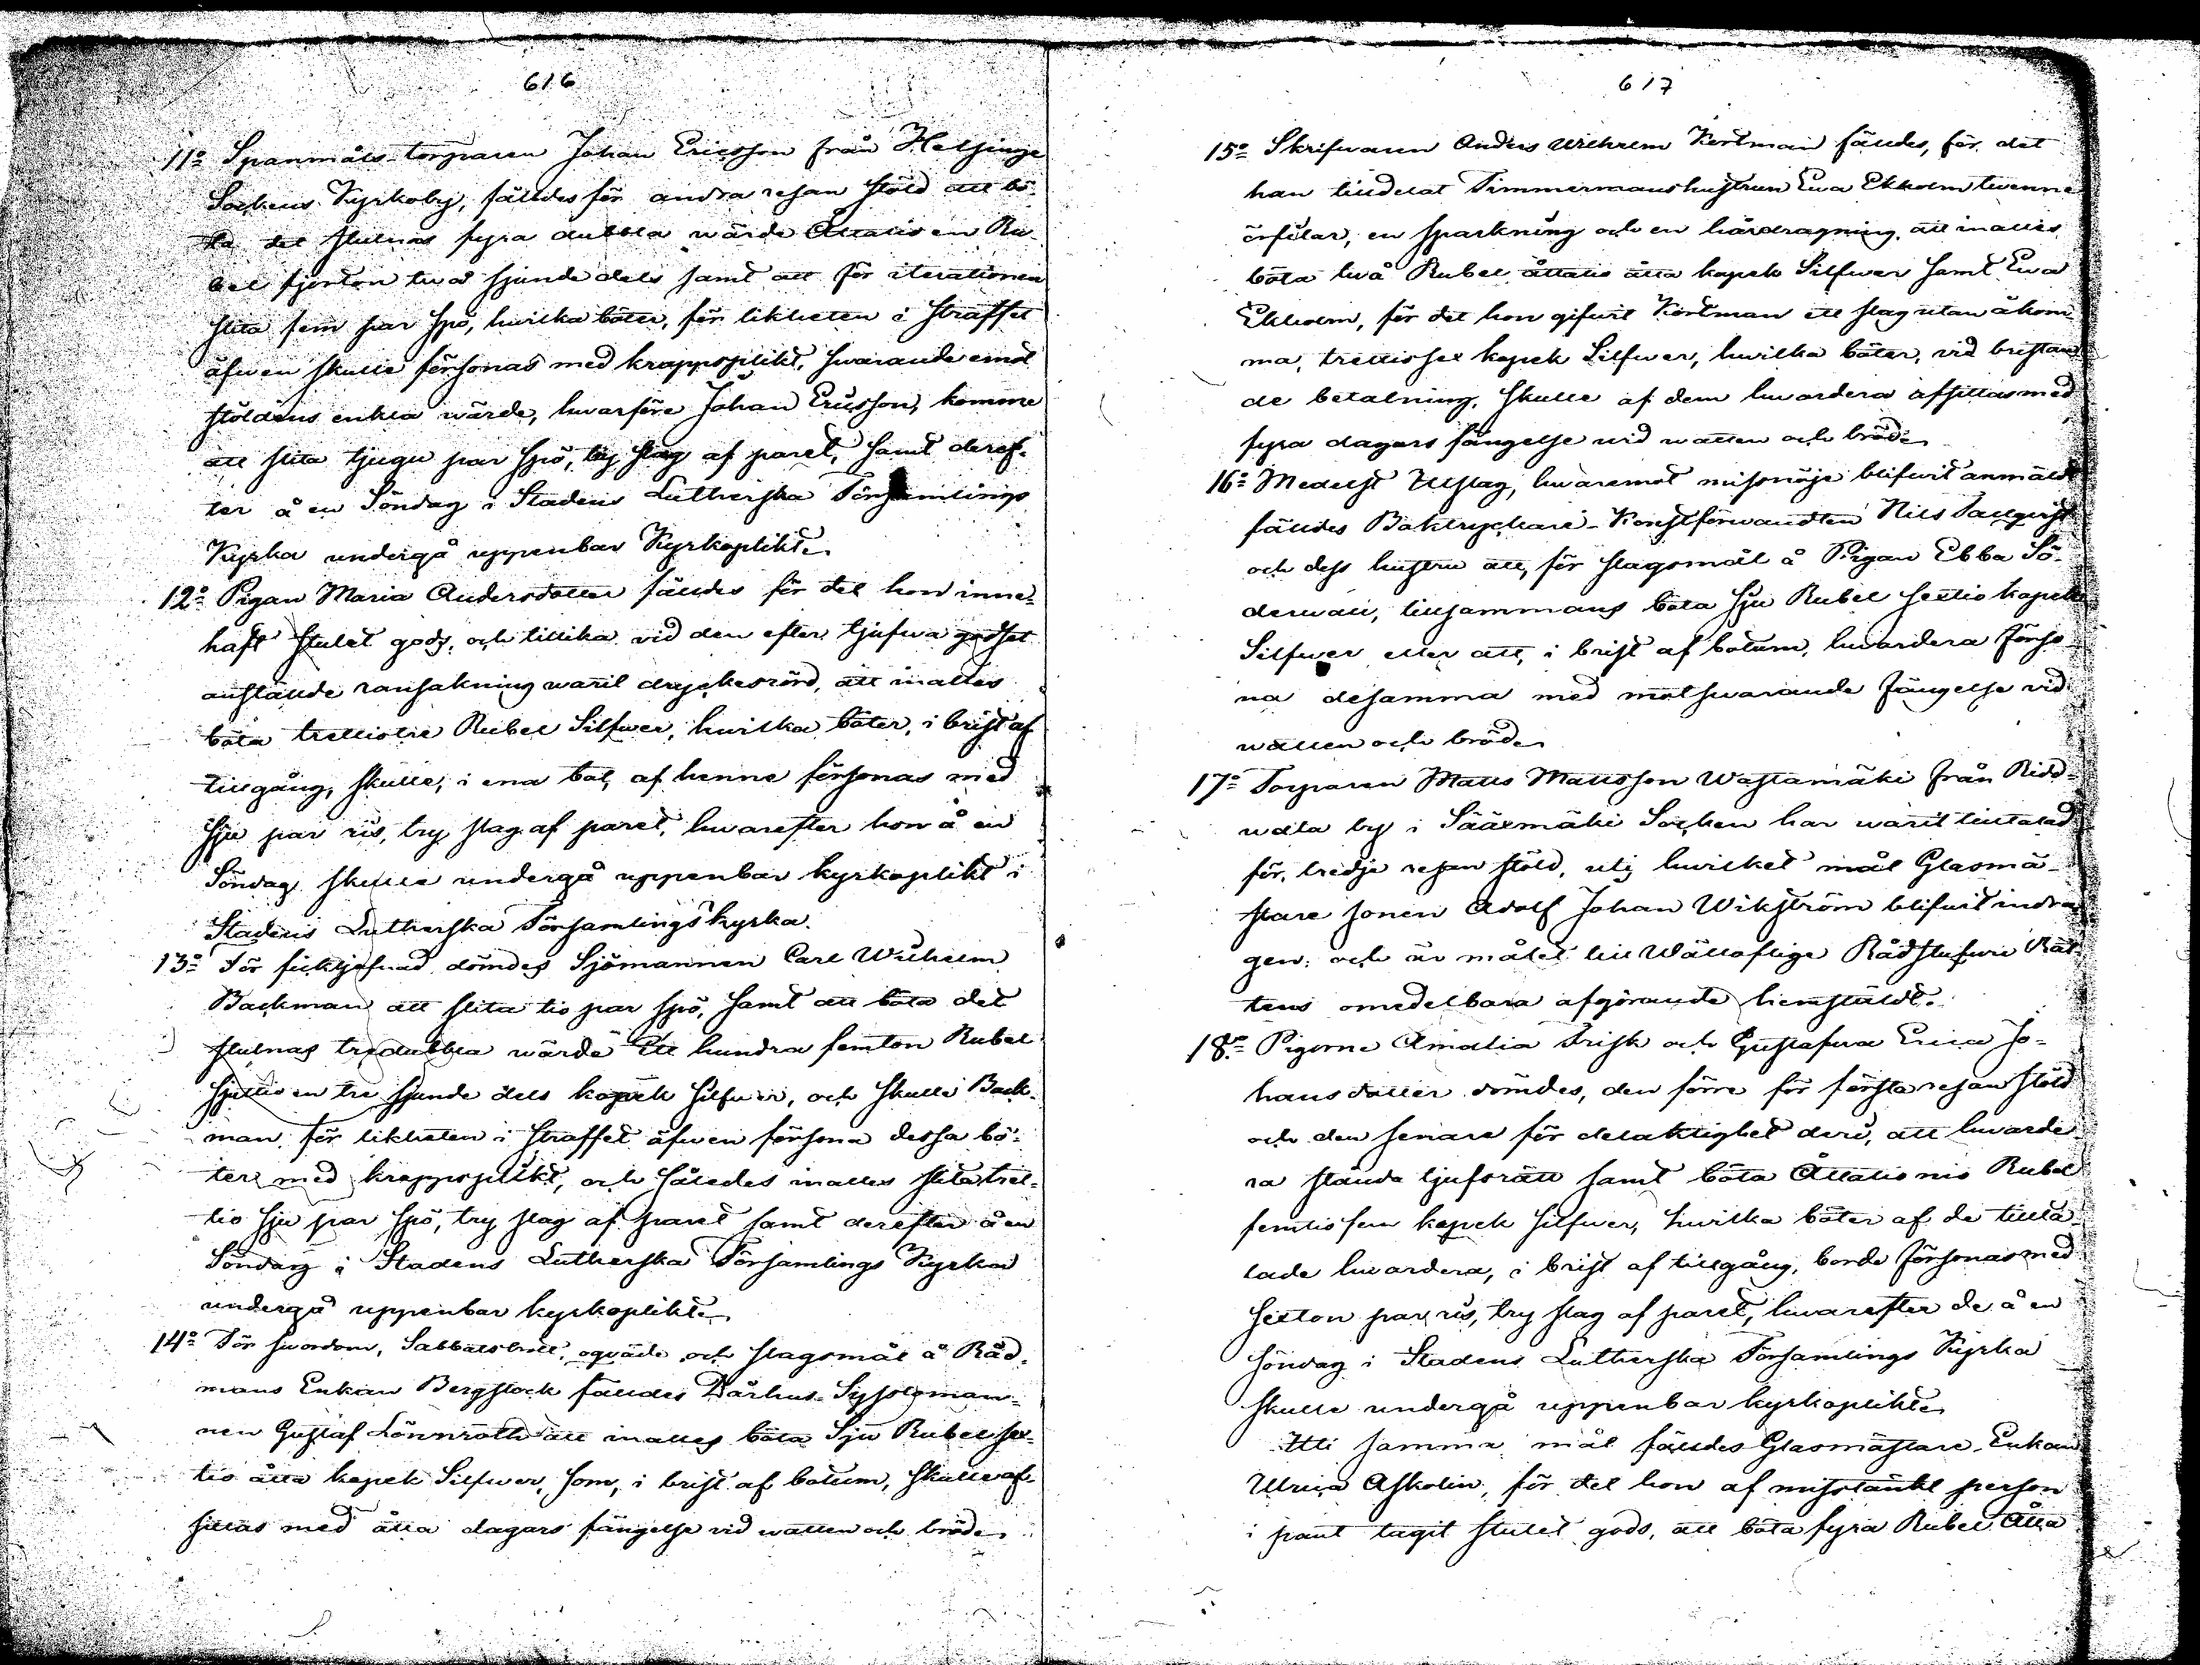 616
11:o Spanmåls-torparen Johan Ericsson från Helsinge
Sockens Kyrkoby, fälldes för andra resan stöld att bö-
ta det stulnas fyra dubbla wärde Åttatio en Ru-
bel fjorton två sjunde dels samt att för iterationen
slita fem par spö, hwilka böter, för likheten i straffet
äfwen skulle försonas med kroppsplikt, swarande emot
stöldens enkla wärde, hwarföre Johan Ericsson, komme
att slita tjugu par spö, try slag af paret, samt deref-
ter å en Söndag i Stadens Lutherska Församlings
Kyrka undergå uppenbar Kyrkoplikt.
12:o Pigan Maria Andersdotter fälldes för det hon inne-
haft stulet gods, och tillika vid den efter tjufwa godset
anstälde ransakning warit dryckesrörd, att inalles
böta trettiotre Rubel Silfwer, hwilka böter, i brist af
tillgång, skulle, i ena bot, af henne försonas med
sju par ris, try slag af paret, hwarefter hon å en
Söndag skulle undergå uppenbar kyrkoplikt i
Stadens Lutherska Församlings kyrka.
13:o För ficktjufnad dömdes Sjömannen Carl Wilhelm
Backman att slita tio par spö, samt att böta det
stulnas tredubbla wärde Ett hundra femton Rubel
sjuttio en tre sjunde dels kopek silfwer, och skulle Back-
man för likheten i straffet äfwen försona dessa bö-
ter med kroppsplikt, och således inalles slita tret-
tio sju par spö, try slag af paret samt derefter å en
Söndag i Stadens Lutherska Församlings Kyrka
undergå uppenbar kyrkoplikt.
14:o För swordom, Sabbatsbrott, oqväde och slagsmål å Råd-
mans Enkan Bergstock fälldes Dårhus-Syssloman-
nen Gustaf Lönnroth att inalles böta Sju Rubel sex-
tio åtta kopek Silfwer, som, i brist af botum, skulle af-
sittas med åtta dagars fängelse vid watten och bröd.
617
15:o Skrifwaren Anders Wilhelm Kortman fälldes, för det
han tilldelat Timmermanshustrun Ewa Ekholm twenne
örfilar, en sparkning och en hårdragning, att inalles
böta två Rubel åttatio åtta kopek Silfwer samt Ewa
Ekholm, för det hon gifwit Kortman ett slag utan åkom-
ma, trettiosex kopek Silfwer, hwilka böter, vid bristan-
de betalning, skulle af dem hwardera afsittas med
fyra dagars fängelse vid watten och bröd.
16:o Medelst Utslag, hwaremot missnöje blifwit anmäldt
fälldes Boktryckare-Konstförwandten Nils Tallqvist
och dess hustru att, för slagsmål å Pigan Ebba Sö-
derwall, tillsammans böta Sju Rubel sextio kopek
Silfwer eller att, i brist af botum, hwardera förso-
na desamma med motswarande fängelse vid
watten och bröd.
17:o Torparen Matts Mattsson Wastamäki från Ridd-
wala by i Sääxmäki Socken har warit tilltalad
för tredje resan stöld, uti hwilket mål Glasmä-
stare sonen Adolf Johan Wikström blifwit indra-
gen; och är målet till Wällofliga Rådstufwu Rät-
tens omedelbara afgörande hemstäldt.
18:o Pigorne Amalia Frisk och Gustafwa Erica Jo-
hansdotter dömdes, den förre för första resan stöld
och den senare för delaktighet deri, att hwarde-
ra stånda tjufsrätt samt böta Åttatio nio Rubel
femtio fem kopek silfwer, hwilka böter af de tillta-
lade hwardera, i brist af tillgång, borde försonas med
sexton par ris, try slag af paret, hwarefter de å en
söndag i Stadens Lutherska Församlings Kyrka
skulle undergå uppenbar kyrkoplikt.
Uti samma mål fälldes Glasmästare-Enkan
Ulrica Askolin, för det hon af misstänkt person
i pant tagit stulet gods, att böta fyra Rubel Åtta